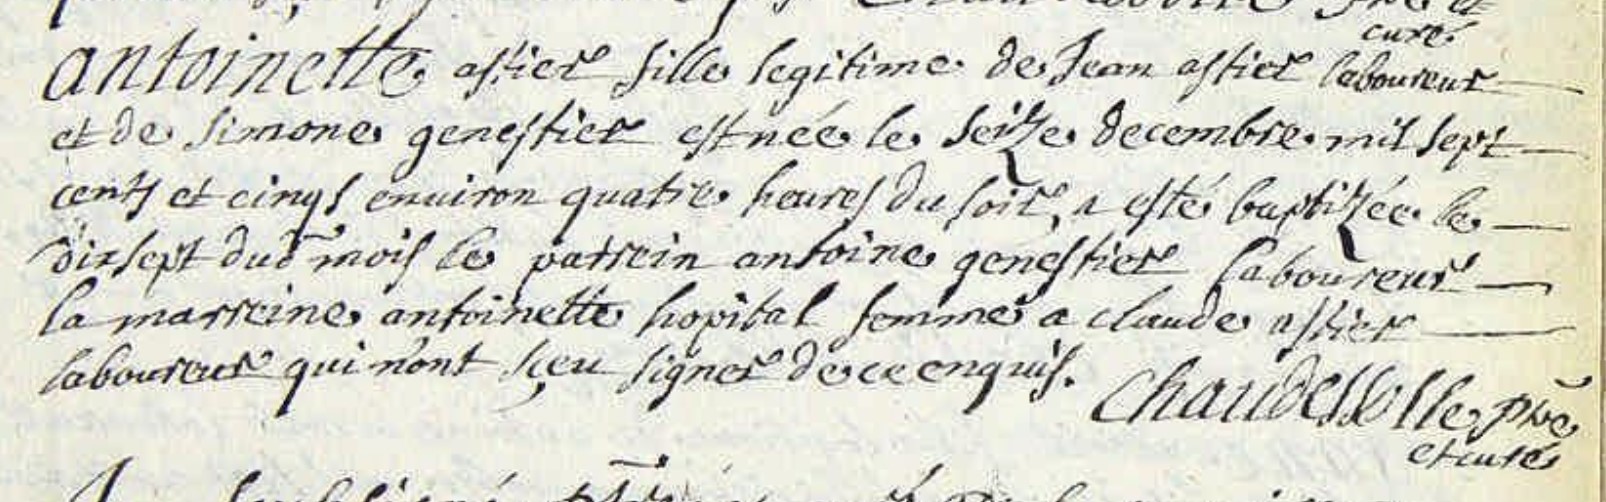 curé
antoinette astier fille legitime de Jean astier laboureur
et de simone genestier est née le seize decembre mil sept
cents et cinqs enuiron quatre heures du soir, a esté baptizée le
dixsept dud mois le parrein antoine genestier laboureur
la marreine antoinette hopital femme a claude astier
laboureur qui n'ont sçeu signer de ce enquis.
Chaudessolle pbre
et curé